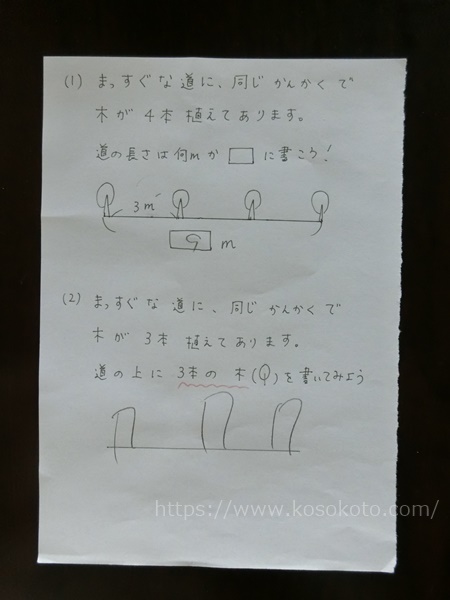 (1) まっすぐな道に、同じかんかくで
木が4本植えてあります。
道の長さは何mか□に書こう!
3m
9 m
(2) まっすぐな道に、同じかんかくで
木が3本植えてあります。
道の上に3本の木(
)を書いてみよう
https://www.kosokoto.com/